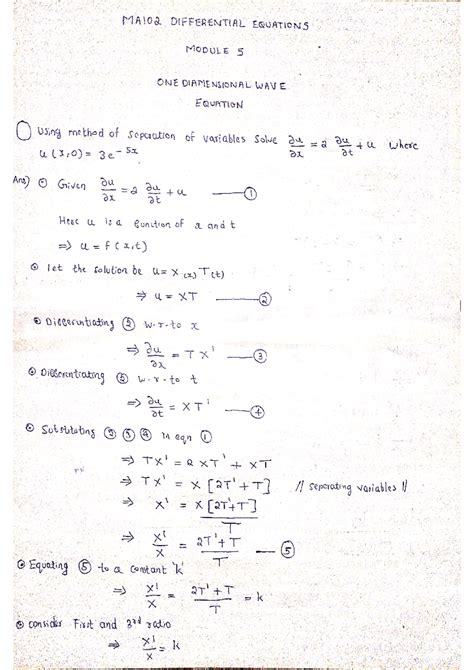 MA102 DIFFERENTIAL EQUATIONS
MODULE 5
ONE DIAMENSIONAL WAVE
EQUATION
Using method of separation of variables solve ∂u/∂x = 2 ∂u/∂t + u where
u(x,0) = 3e^-5x
Ans) Given ∂u/∂x = 2 ∂u/∂t + u — ①
Here u is a function of x and t
⇒ u = f(x,t)
let the solution be u = X(x) T(t)
⇒ u = XT — ②
Differentiating ② w.r.to x
⇒ ∂u/∂x = TX' — ③
Differentiating ② w.r.to t
⇒ ∂u/∂t = XT' — ④
Substituting ② ③ ④ in eqn ①
⇒ TX' = 2XT' + XT
⇒ TX' = X[2T'+T] // separating variables //
⇒ X' = X[2T'+T]/T
X'/X = 2T'+T/T — ⑤
Equating ⑤ to a constant 'k'
⇒ X'/X = 2T'+T/T = k
consider First and 3rd ratio
⇒ X'/X = k